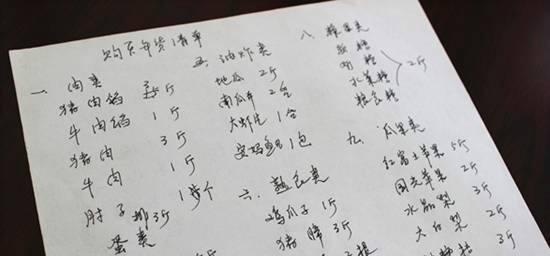 购买年货清单
一、肉类
猪肉馅 3斤
牛肉馅 1斤
猪肉 3斤
牛肉 1斤
肘子 1个
3斤
蛋类
五、油炸类
地瓜 2斤
南瓜 2
大虾片 1
1包
六、熟食类
鸡爪子 1斤
猪蹄 3斤
八、糖果类
酥糖
水果糖
2斤
九、瓜果类
红富士苹果 5斤
国光苹果 2斤
水晶梨 3斤
大白梨 2斤
3斤